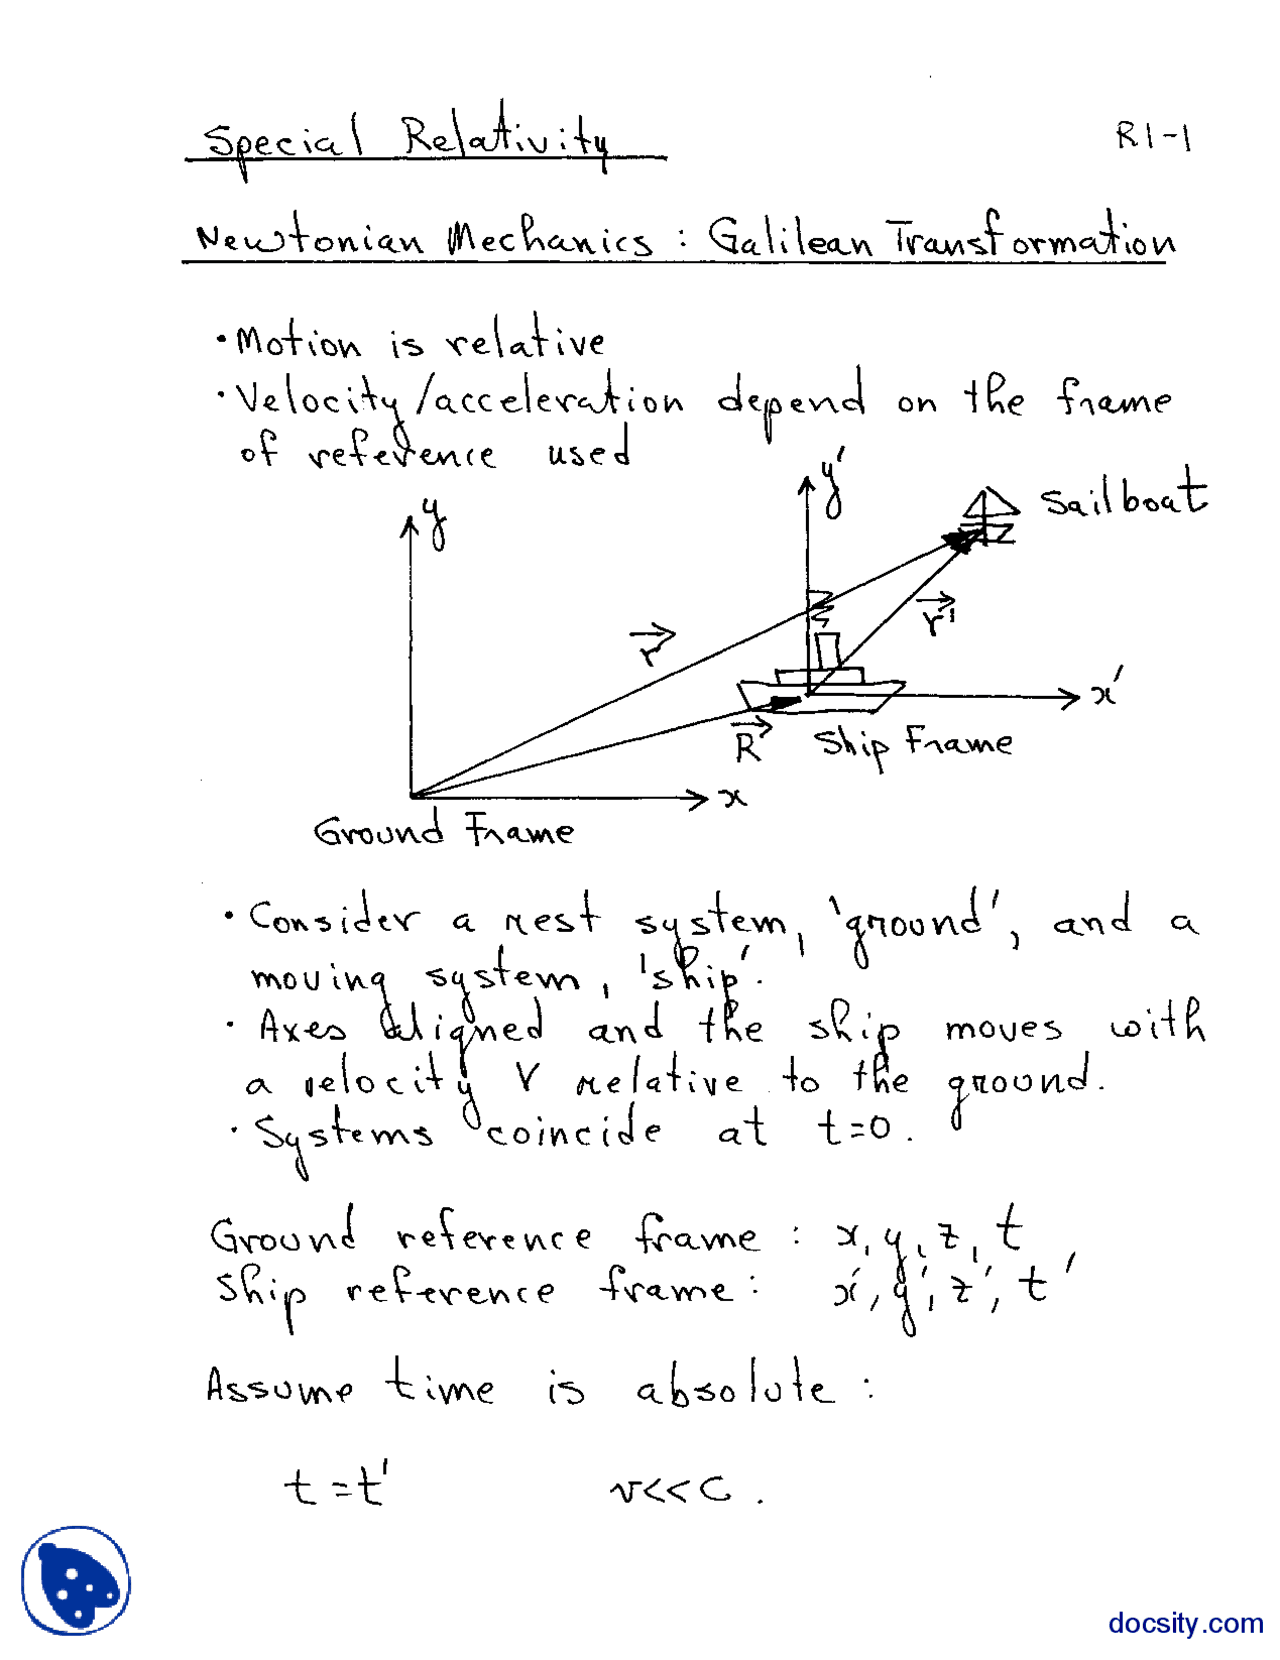 Special Relativity
R1-1
Newtonian Mechanics : Galilean Transformation
· Motion is relative
· Velocity/acceleration depend on the frame
of reference used
y
y'
Sailboat
r
r'
x'
R
Ship Frame
x
Ground Frame
· Consider a rest system, 'ground', and a
moving system, 'ship'.
· Axes aligned and the ship moves with
a velocity V relative to the ground.
· Systems coincide at t=0.
Ground reference frame : x, y, z, t
Ship reference frame : x', y', z', t'
Assume time is absolute :
t = t' v<<c.
docsity.com